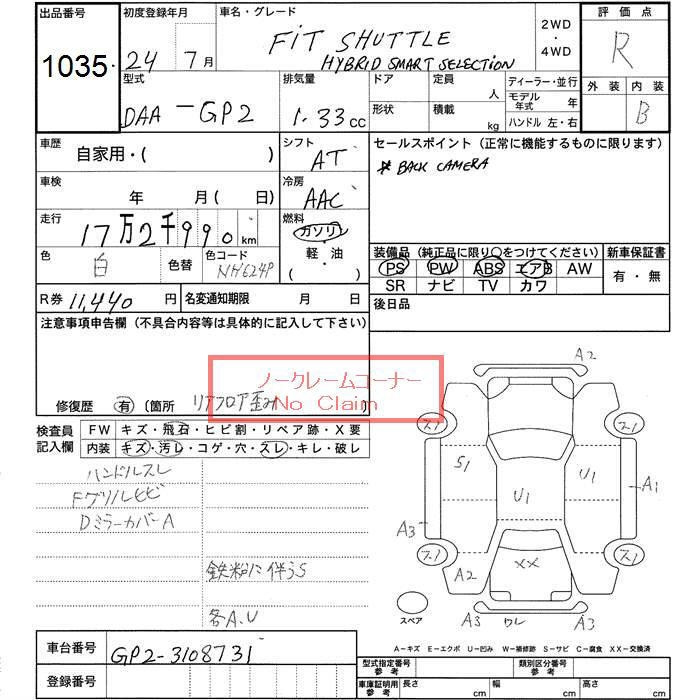 出品番号 初度登録年月 車名・グレード 2WD・4WD 評価点
1035 24年 7月 FiT SHUTTLE R
HYBRID SMART SELECTiON
型式 排気量 ドア 定員 人 ディーラー・並行 外装 内装
DAA-GP2 1.33cc 形状 積載 kg モデル年式 年 B
ハンドル 左・右
車歴 自家用・( ) シフト AT セールスポイント(正常に機能するものに限ります)
* BACK CAMERA
車検 年 月( 日) 冷房 AAC
走行 17万2千990km 燃料 ガソリン・軽油・( )
装備品(純正品に限り○をつけてください) 新車保証書
色 白 色替 色コード NH624P
PS PW ABS エアB AW 有・無
SR ナビ TV カワ
R券 11,440円 名変通知期限 月 日 後日品
注意事項申告欄(不具合内容等は具体的に記入して下さい)
ノークレームコーナー
No Claim
修復歴 有 (箇所 リアフロア歪み)
検査員記入欄 FW キズ・飛石・ヒビ割・リペア跡・X要
内装 キズ・汚レ・コゲ・穴・スレ・キレ・破レ
ハンドルスレ
Fグリルヒビ
DミラーカバーA
鉄粉に伴うS
各A.U
A2
スリ スリ
S1 U1 U1 A1
A3
スリ XX スリ
A2
A3 ワレ A3
スペア
A-キズ E-エクボ U-凹み W-補修跡 S-サビ C-腐食 XX-交換済
車台番号 GP2-3108731
登録番号
型式指定番号 参考 類別区分番号 参考
車庫証明用 参考 長さ cm 幅 cm 高さ cm